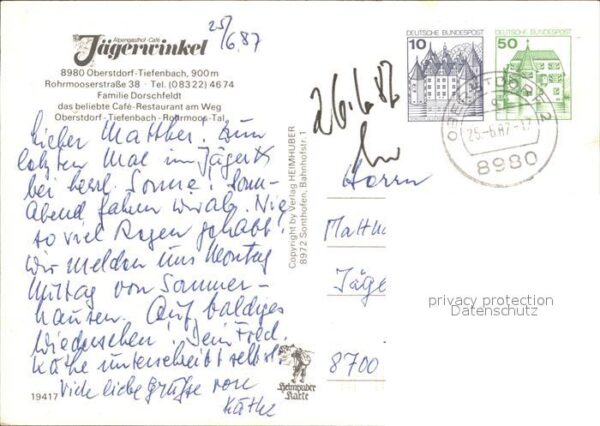 25/6.87
Alpengasthof-Café
Jägerwinkel
8980 Oberstdorf-Tiefenbach, 900 m
Rohrmooserstraße 38 · Tel. (08322) 4674
Familie Dorschfeldt
das beliebte Café-Restaurant am Weg
Oberstdorf-Tiefenbach-Rohrmoos-Tal
Lieber Matthes! Zum
letzten Mal im Jäger
bei herrl. Sonne! Sonn-
abend fahren wir ab. Nie
so viel Regen gehabt!
Wir melden uns Montag
Mittag von Sommer-
hausen. Auf baldiges
Wiedersehen! Dein Fred.
Käthe unterschreibt selbst.
Viele liebe Grüße von
Käthe
19417
Copyright by Verlag HEIMHUBER
8972 Sonthofen, Bahnhofstr. 1
Heimhuber
Karte
26.6.87
DEUTSCHE BUNDESPOST
10
DEUTSCHE BUNDESPOST
50
OBERSTDORF 2
25.-6.87-17
8980
Herrn
Matth
Jäge
8700
privacy protection
Datenschutz